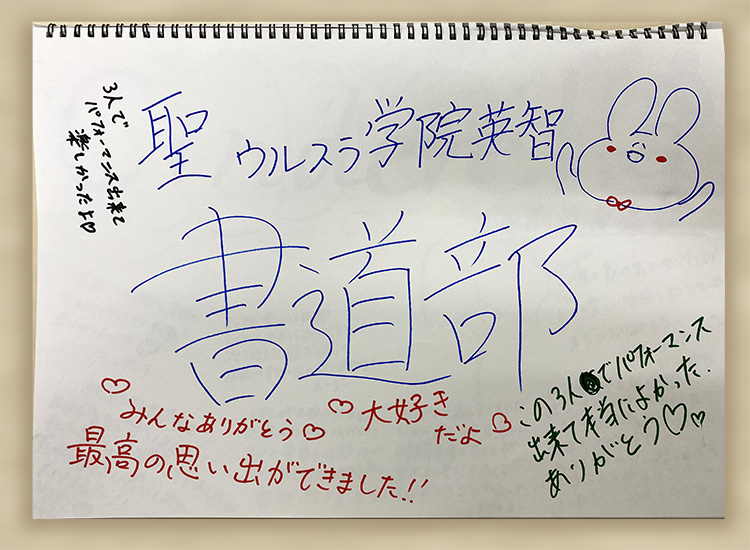 3人で
パフォーマンス出来て
楽しかったよ♡
聖ウルスラ学院英智
書道部
♡みんなありがとう♡
♡大好き
だよ♡
最高の思い出ができました!!
この3人でパフォーマンス
出来て本当によかった.
ありがとう♡♡